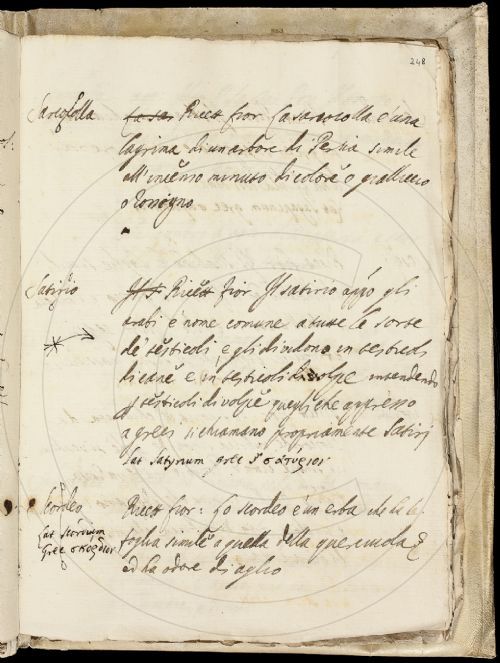 248
Sarcocolla
Ricett fior La sarcocolla è una
lagrima di un arbore di Persia simile
all'incenso minuto di colore o gialliccio
o rossigno
Satirio
Ricett fior Il satirio appo gli
arabi è nome comune a tutte le sorte
de testicoli e gli dividono in testicoli
di cane e in testicoli di volpe intendendo
testicoli di volpe quegli che appresso
a greci si chiamano propriamente Satirj
Lat Satyrium grec σατύριον
Scordeo
Lat Scordium
Grec σκόρδιον
Ricett fior: Lo scordeo è un erba che ha la
foglia simile a quella della querciuola
ed ha odore di aglio